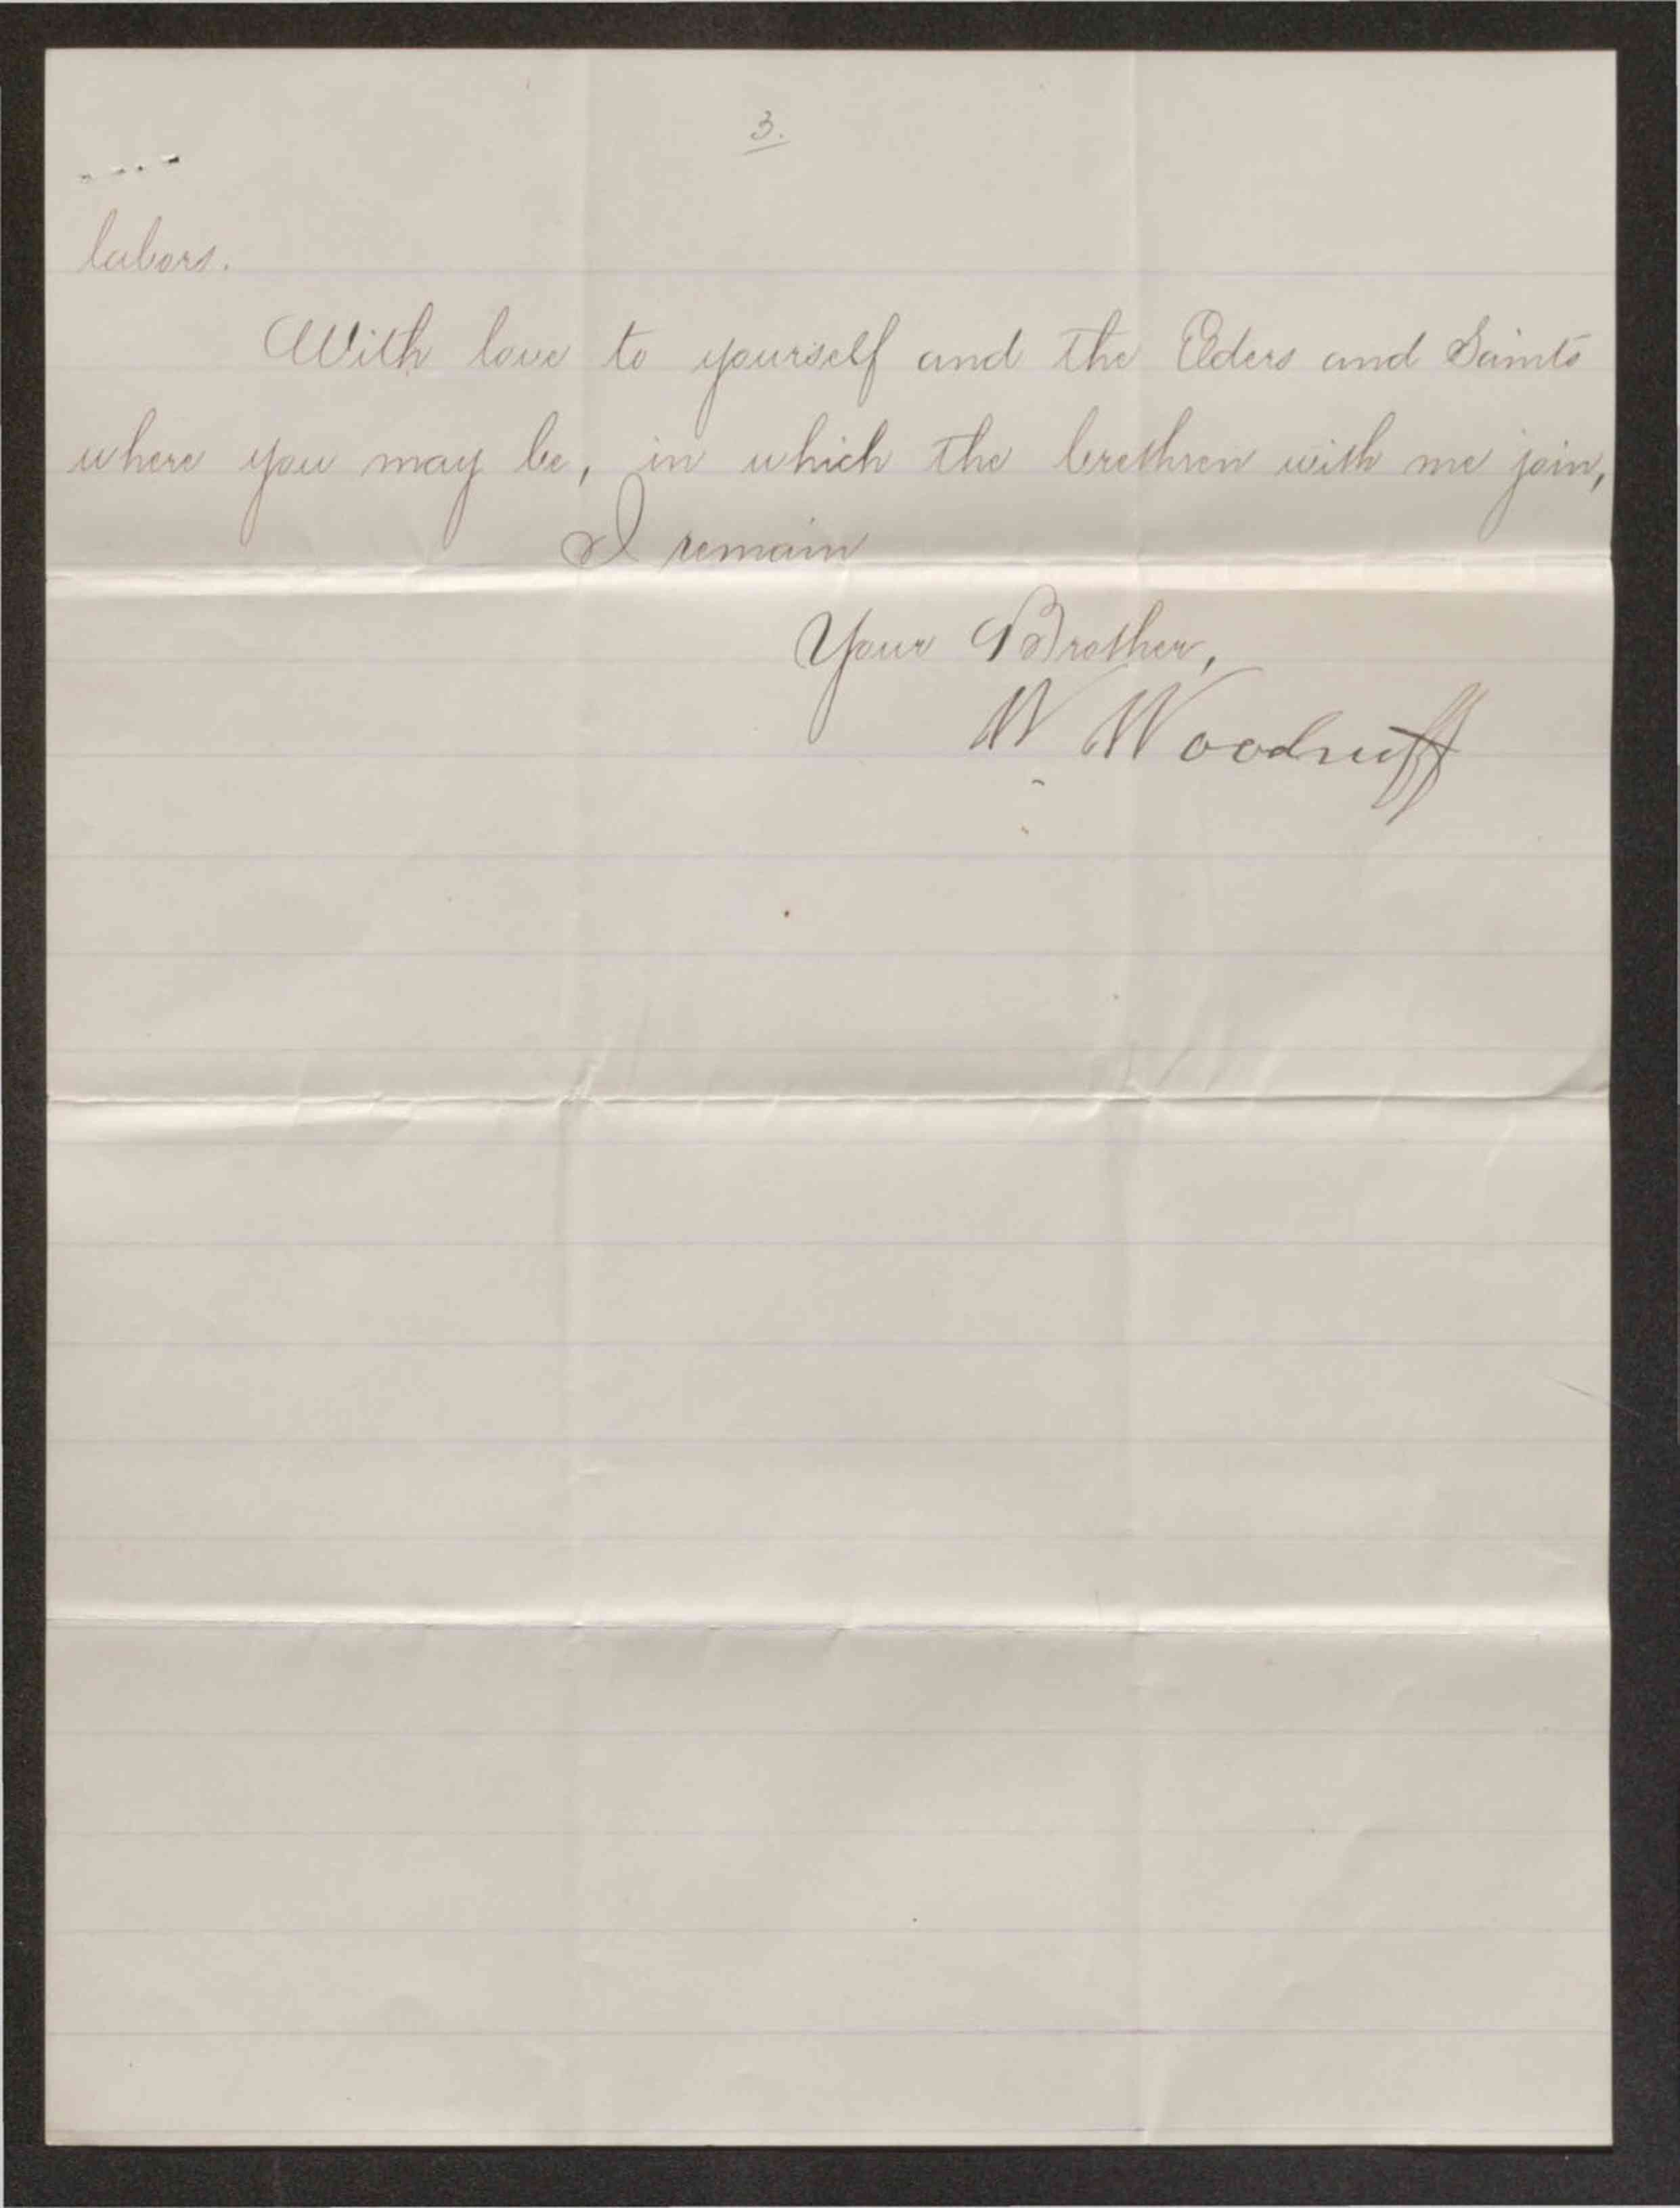 3.
labors.
With love to yourself and the Elders and Saints
where you may be, in which the brethren with me join,
I remain
Your Brother,
W Woodruff